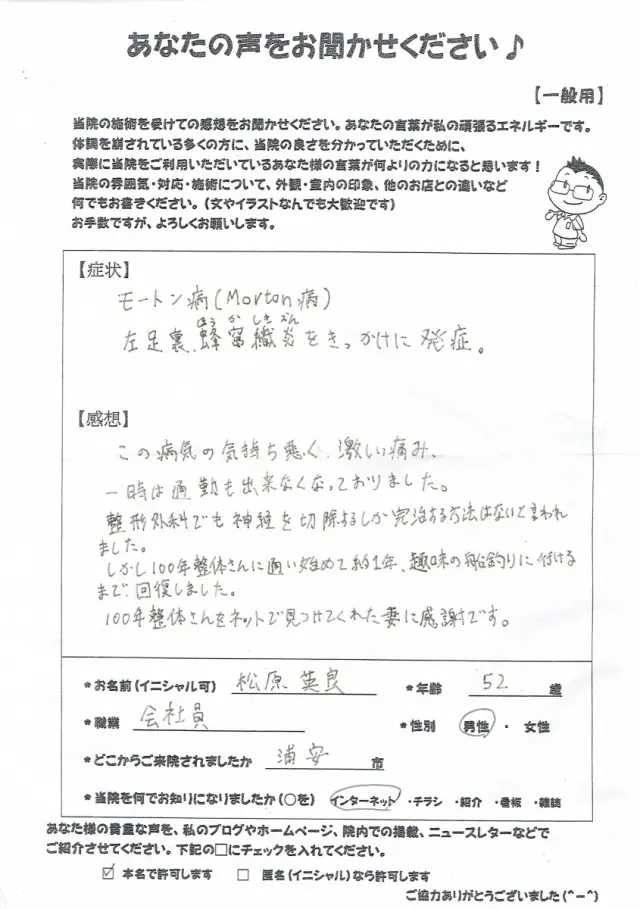 あなたの声をお聞かせください♪
【一般用】
当院の施術を受けての感想をお聞かせください。あなたの言葉が私の頑張るエネルギーです。
体調を崩されている多くの方に、当院の良さを分かっていただくために、
実際に当院をご利用いただいているあなた様の言葉が何よりの力になると思います！
当院の雰囲気・対応・施術について、外観・室内の印象、他のお店との違いなど
何でもお書きください。(文やイラストなんでも大歓迎です)
お手数ですが、よろしくお願いします。
【症状】
モートン病(Morton病)
ほう か しき えん
左足裏、蜂窩織炎をきっかけに発症。
【感想】
この病気の気持ち悪く、激しい痛み、
一時は通勤も出来なくなっておりました。
整形外科でも神経を切除するしか完治する方法はないと言われ
ました。
しかし100年整体さんに通い始めて約1年、趣味の船釣りに行ける
まで回復しました。
100年整体さんをネットで見つけてくれた妻に感謝です。
*お名前(イニシャル可) 松原 英良 *年齢 52 歳
*職業 会社員 *性別 男性 ・ 女性
*どこからご来院されましたか 浦安 市
*当院を何でお知りになりましたか(○を) インターネット ・チラシ ・紹介 ・看板 ・雑誌
あなた様の貴重な声を、私のブログやホームページ、院内での掲載、ニュースレターなどで
ご紹介させてください。下記の□にチェックを入れてください。
☑ 本名で許可します □ 匿名(イニシャル)なら許可します
ご協力ありがとうございました(^-^)